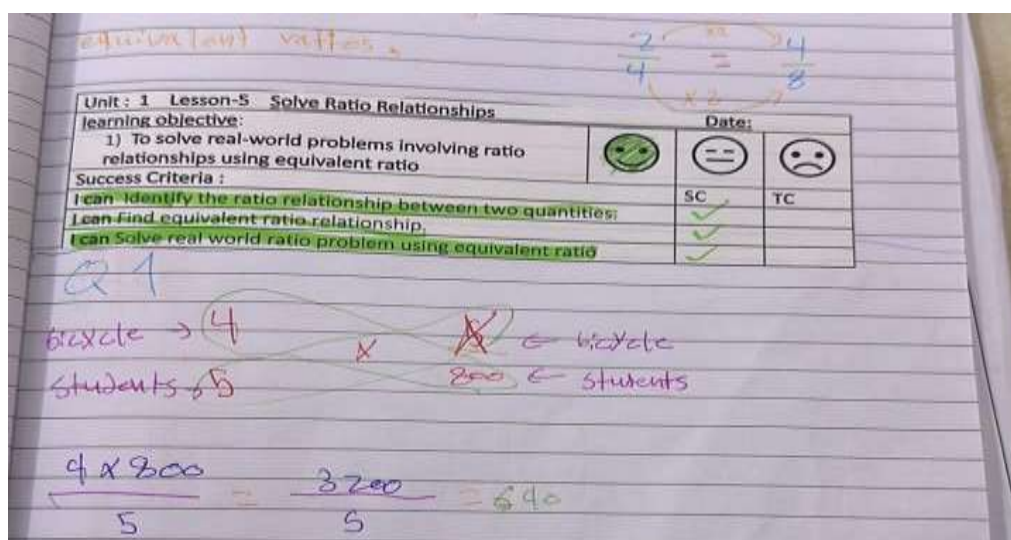 equivalent ratios.
x2
2/4 = 4/8
x 2
Unit : 1 Lesson-5 Solve Ratio Relationships
learning objective: Date:
1) To solve real-world problems involving ratio
relationships using equivalent ratio
Success Criteria : SC TC
I can Identify the ratio relationship between two quantities;
I can Find equivalent ratio relationship,
I can Solve real world ratio problem using equivalent ratio
Q 1
bicycle → 4 x ← bicycle
students → 5 800 ← students
4 x 800 / 5 = 3200 / 5 = 640